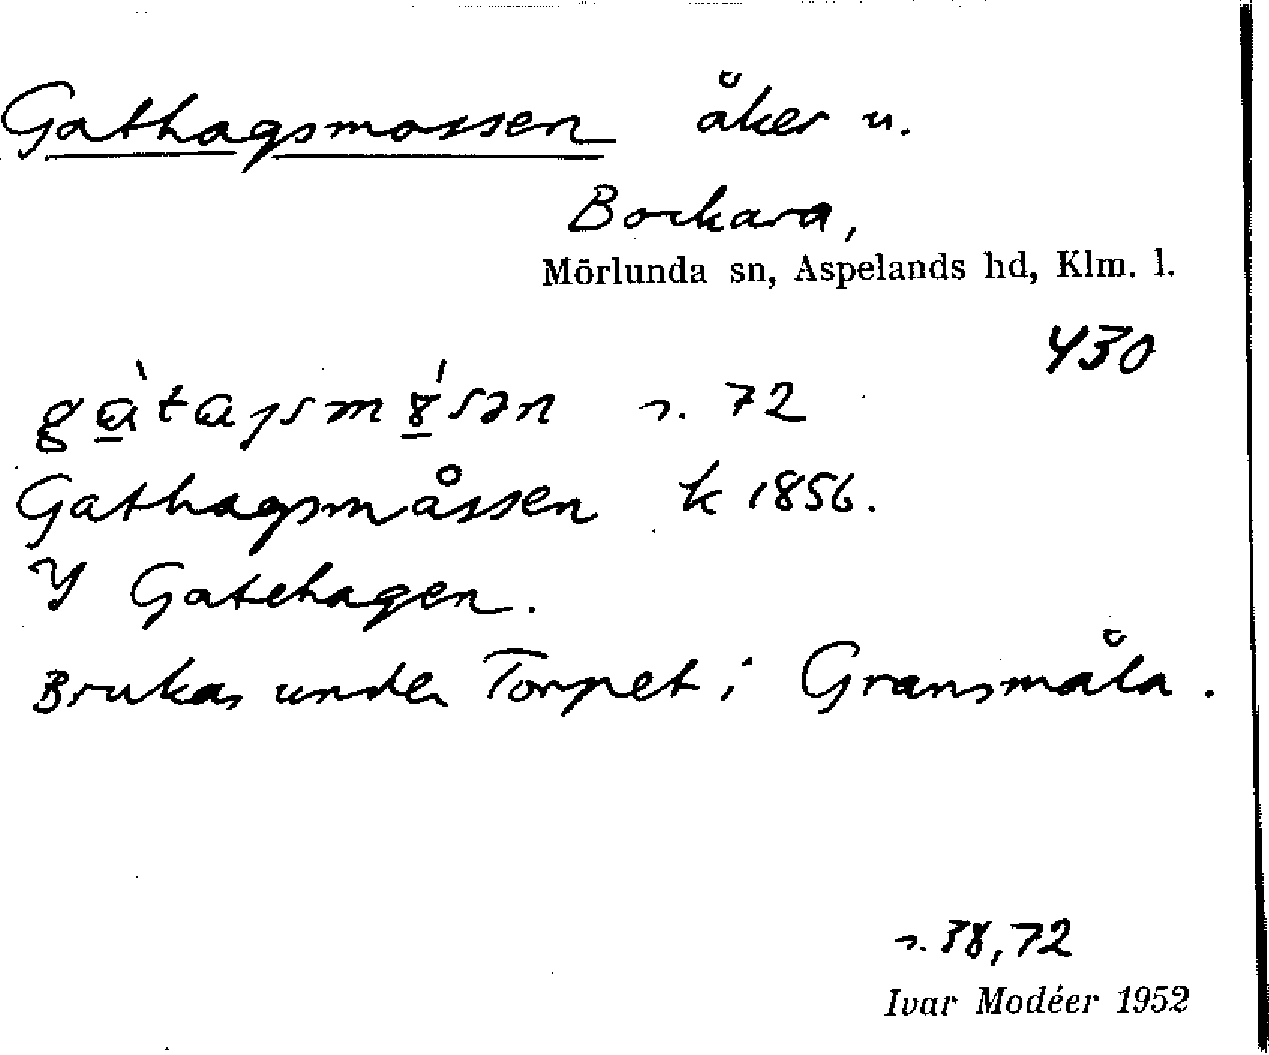 Gathagsmossen åker u.
Bockara,
Mörlunda sn, Aspelands hd, Klm. l.
430
s. 72
Gathagsmåssen k 1856.
I Gatehagen.
Brukas under Torpet i Gransmåla.
s. 38, 72
Ivar Modéer 1952